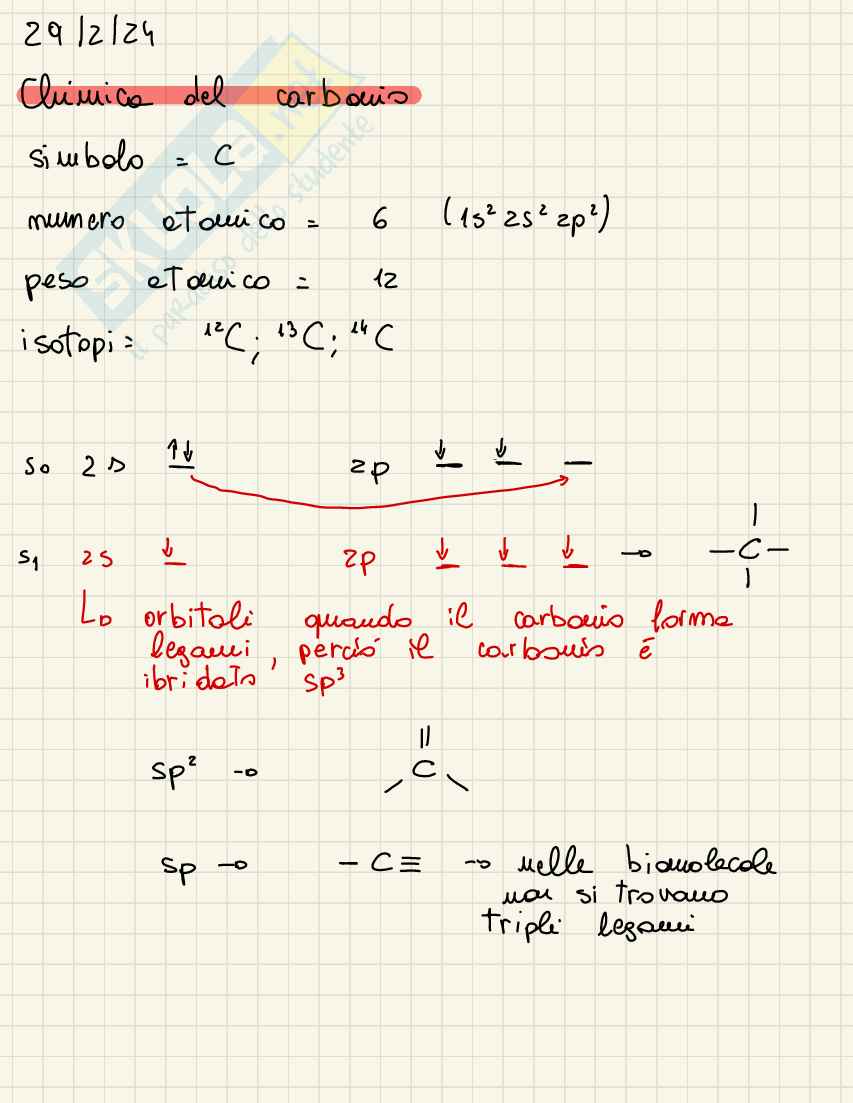 29/2/24
Chimica del carbonio
simbolo = C
numero atomico = 6 (1s² 2s² 2p²)
peso atomico = 12
isotopi = ¹²C; ¹³C; ¹⁴C
s0 2s ↑↓ 2p ↓ ↓
s1 2s ↓ 2p ↓ ↓ ↓ → C
↳ orbitali quando il carbonio forma
legami, perciò il carbonio é
ibridato sp³
sp² → C
sp → - C ≡ → nelle biomolecole
non si trovano
tripli legami
SKUOLA.net
il paradiso dello studente